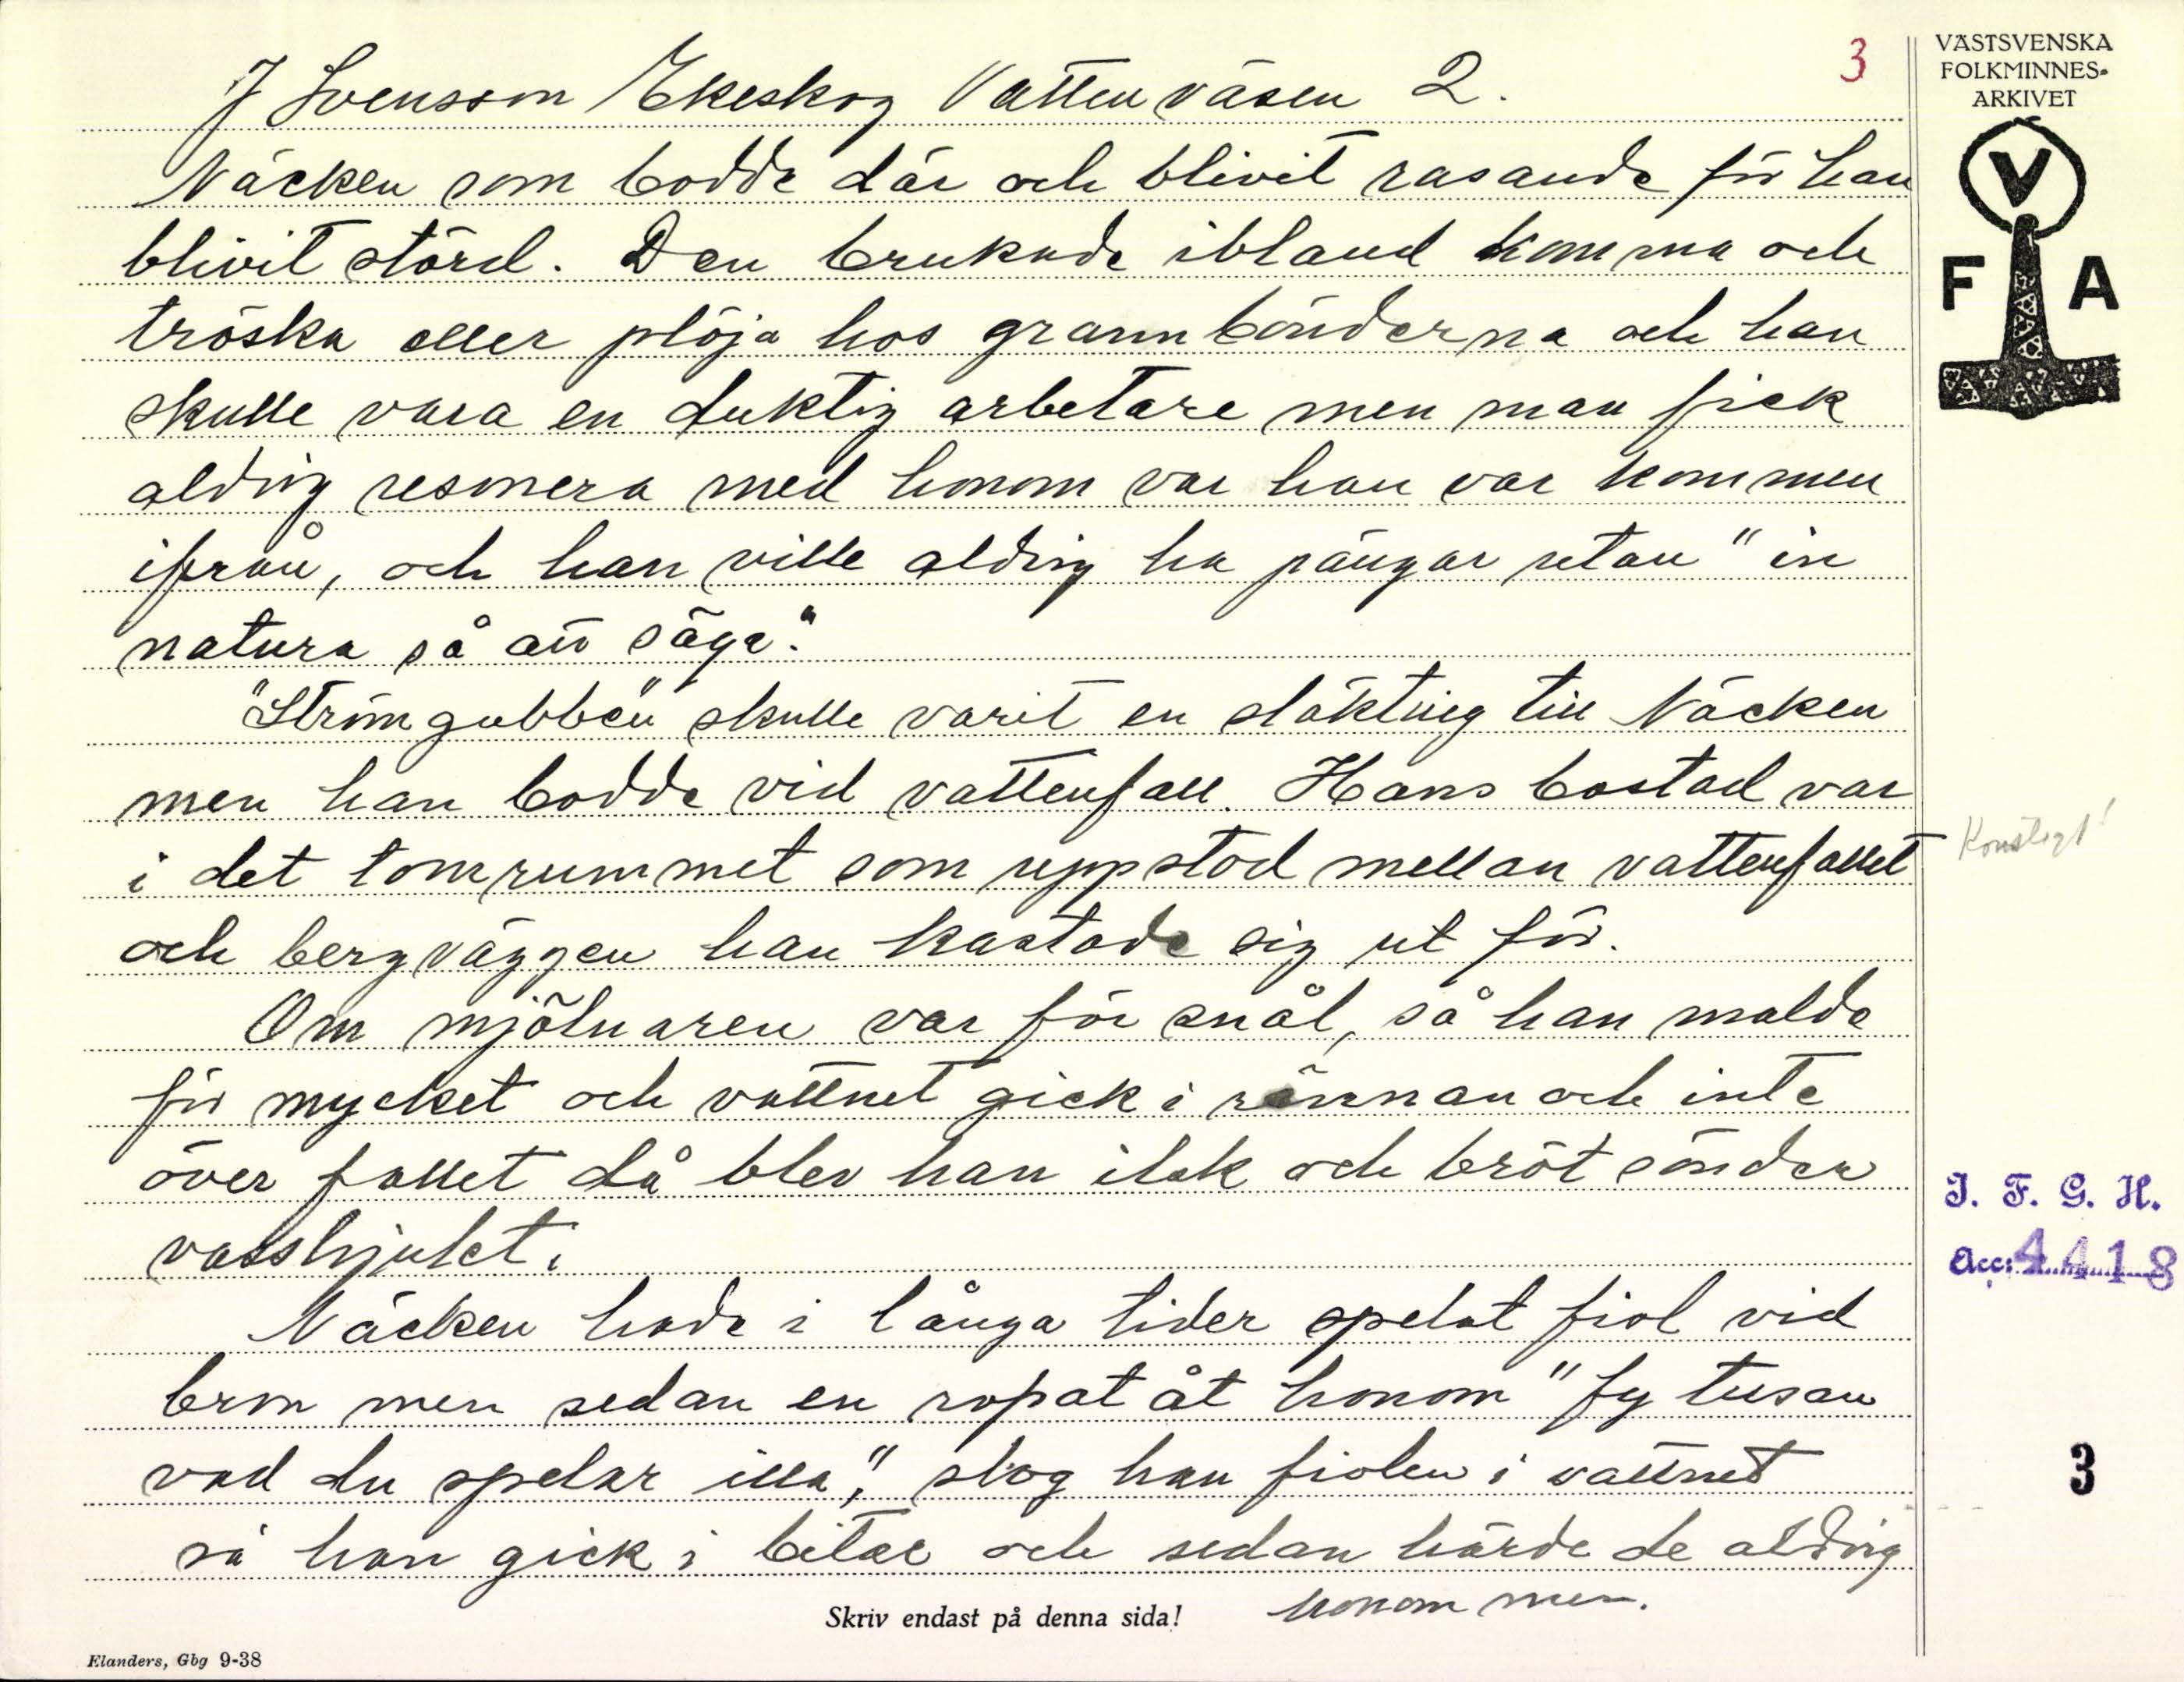 J Svensson Ekeskog Vattenväsen 2.
3
Näcken som bodde där och blivit rasande för han
blivit störd. Den brukade ibland komma och
tröska eller plöja hos grannbönderna och han
skulle vara en duktig arbetare men man fick
aldrig resonera med honom var han var kommen
ifrån, och han ville aldrig ha pängar utan "in
natura så att säga".
"Strömgubben" skulle varit en släkting till Näcken
men han bodde vid vattenfall. Hans bostad var
i det tomrummet som uppstod mellan vattenfallet
och bergväggen han kastade sig ut för.
Om mjölnaren var för snål, så han malde
för mycket och vattnet gick i rännan och inte
över fallet då blev han ilsk och bröt sönder
vasshjulet.
Näcken hade i långa tider spelat fiol vid
bron men sedan en ropat åt honom "fy tusan
vad du spelar illa", slog han fiolen i vattnet
så han gick i bitar och sedan hörde de aldrig
honom mer.
Skriv endast på denna sida!
Elanders, Gbg 9-38
VÄSTSVENSKA
FOLKMINNES-
ARKIVET
V
F A
Konstigt!
I. F. G. H.
Acc: 4418
3